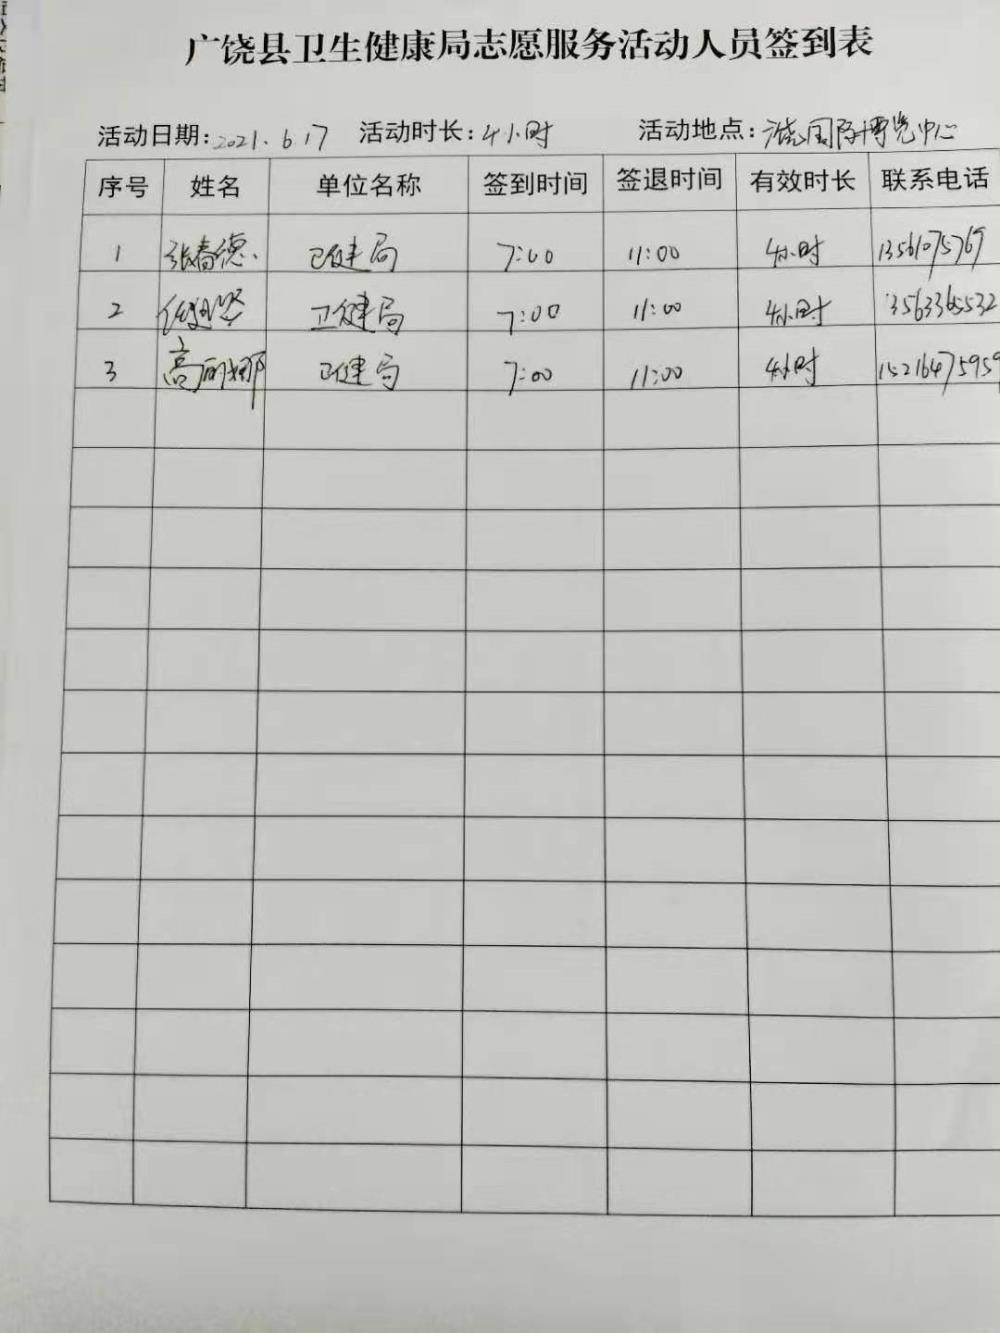 广饶县卫生健康局志愿服务活动人员签到表
活动日期:2021.6.17 活动时长:4小时 活动地点:广饶国际博览中心
序号 姓名 单位名称 签到时间 签退时间 有效时长 联系电话
1 张春德 卫健局 7:00 11:00 4小时 13561075769
2 卫健局 7:00 11:00 4小时 13563365532
3 高丽娜 卫健局 7:00 11:00 4小时 15216475959